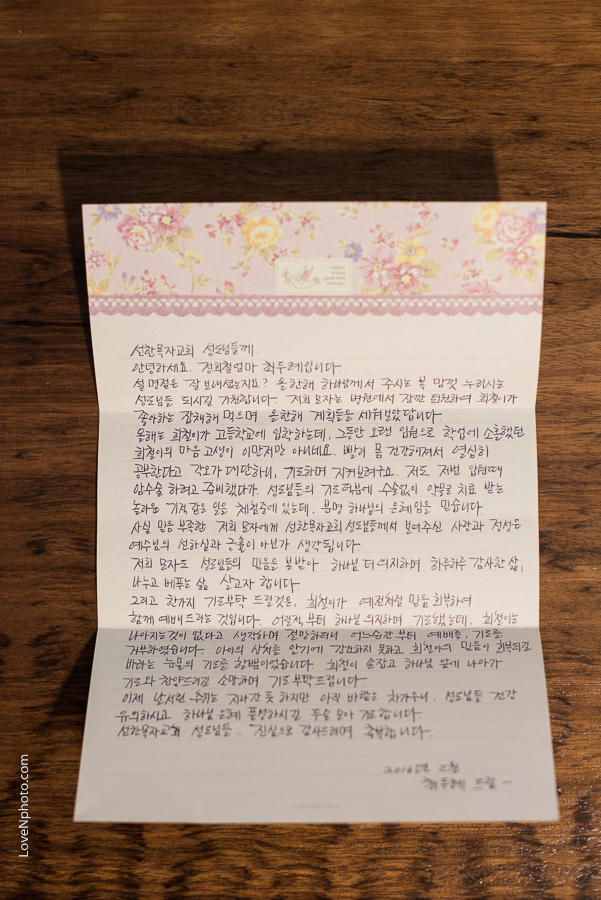 선한목자교회 성도님들께.
안녕하세요. 정희철엄마 허두례입니다.
설 명절은 잘 보내셨는지요? 올한해 하나님께서 주시는 복 맘껏 누리시는
성도님들 되시길 기원합니다. 저희 모자는 병원에서 잠깐 퇴원하여 희철이가
좋아하는 잡채해 먹으며 올한해 계획들을 세워보았답니다.
올해는 희철이가 고등학교에 입학하는데, 그동안 오랜 입원으로 학업에 소홀했던
희철이의 마음고생이 이만저만 아니네요. 빨리 몸 건강해져서 열심히
공부한다고 각오가 대단하니, 기도하며 지켜보려구요. 저도 저번 입원때
암수술 하려고 준비했다가 성도님들의 기도덕분에 수술없이 약물로 치료 받는
놀라운 기적같은 일을 체험중에 있는데, 분명 하나님의 은혜임을 믿습니다
사실 믿음 부족한 저희 모자에게 선한목자교회성도님들께서 보여주신 사랑과 정성은
예수님의 선하심과 긍휼이 아닌가 생각됩니다.
저희 모자도 성도님들의 믿음을 본받아 하나님 더 의지하며 하루하루 감사한 삶,
나누고 베푸는 삶 살고자 합니다.
그리고 한가지 기도부탁 드릴것은, 희철이가 예전처럼 믿음 회복하여
함께 예배드리는 것입니다. 어릴적부터 하나님 의지하며 기도했는데, 희철이는
나아지는것이 없다고 생각하며 절망하더니 어느순간부터 예배를, 기도를
거부하였습니다. 아이의 상처를 알기에 강요하지 못하고 희철이의 믿음이 회복되길
바라는 눈물의 기도를 할뿐이었습니다. 희철이 손잡고 하나님 앞에 나아가
기도와 찬양드리길 소망하며 기도부탁드립니다.
이제 매서운 추위는 지나간 듯 하지만 아직 바람은 차가우니, 성도님들 건강
유의하시고 하나님 은혜 풍성하시길 두손 모아 기도합니다.
선한목자교회 성도님들.. 진심으로 감사드리며 축복합니다.
허두례 드림 -
LoveNphoto.com